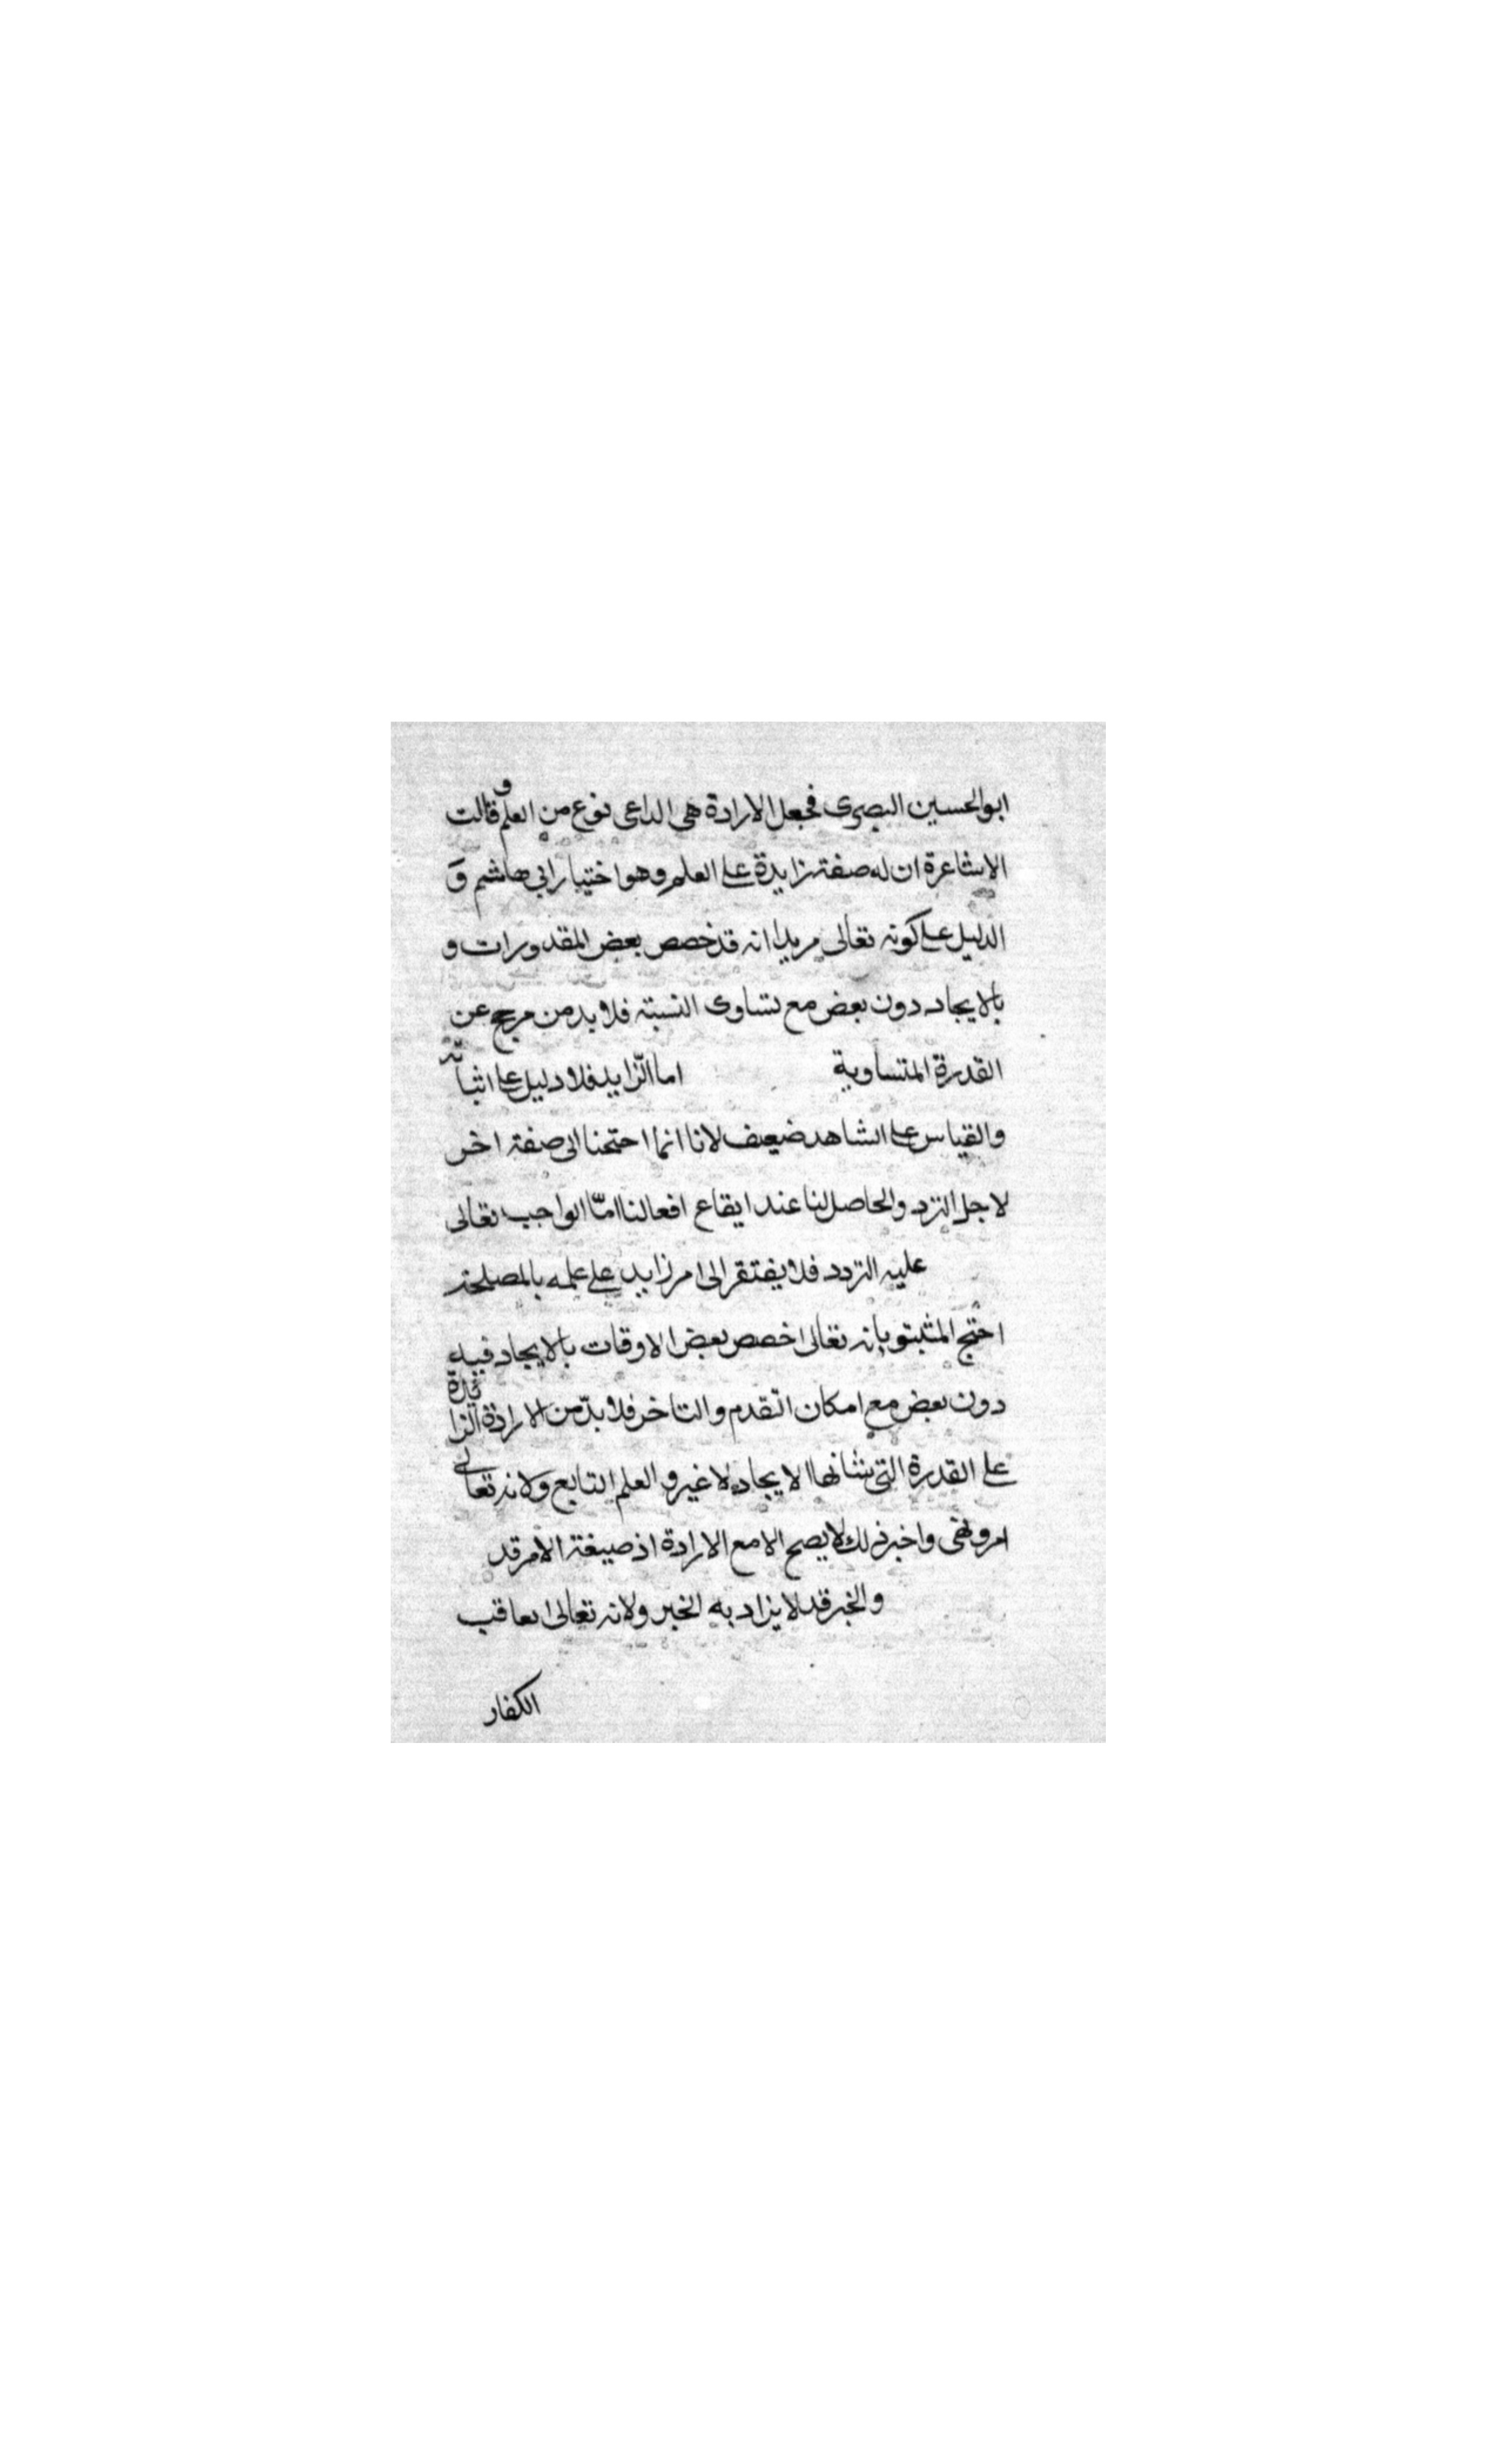 ابو الحسين البصرى فجعل الارادة هى الداعى نوع من العلم و قالت
الاشاعرة ان له صفة زايدة على العلم وهو اختيار ابى هاشم و
الدليل على كونه تعالى مريدا انه قد خصص بعض المقدورات و
بالايجاد دون بعض مع تساوى النسبته فلا بد من مرجح عن
القدرة المتساوية اما الزايد فلا دليل على اثباته
والقياس على الشاهد ضعيف لانا انما احتجنا الى صفة اخر
لاجل الترد والحاصل لنا عند ايقاع افعالنا امّا الواجب تعالى
عليه التردد فلا يفتقر الى امر زايد على علمه بالمصلحة
احتج المثبتو بانه تعالى اخصص بعض الاوقات بالايجاد فيه
دون بعض مع امكان التقدم والتاخر فلا بدّ من الارادة الزايدة
على القدرة التى شانها الا يجاد لا غير و العلم التابع ولانه تعالى
امر ونهى واخبر ذلك لا يصح الا مع الارادة اذ صيغة الامر قد
والخبر قد لا يزاد به الخبر ولانه تعالى ايعاقب
الكفار